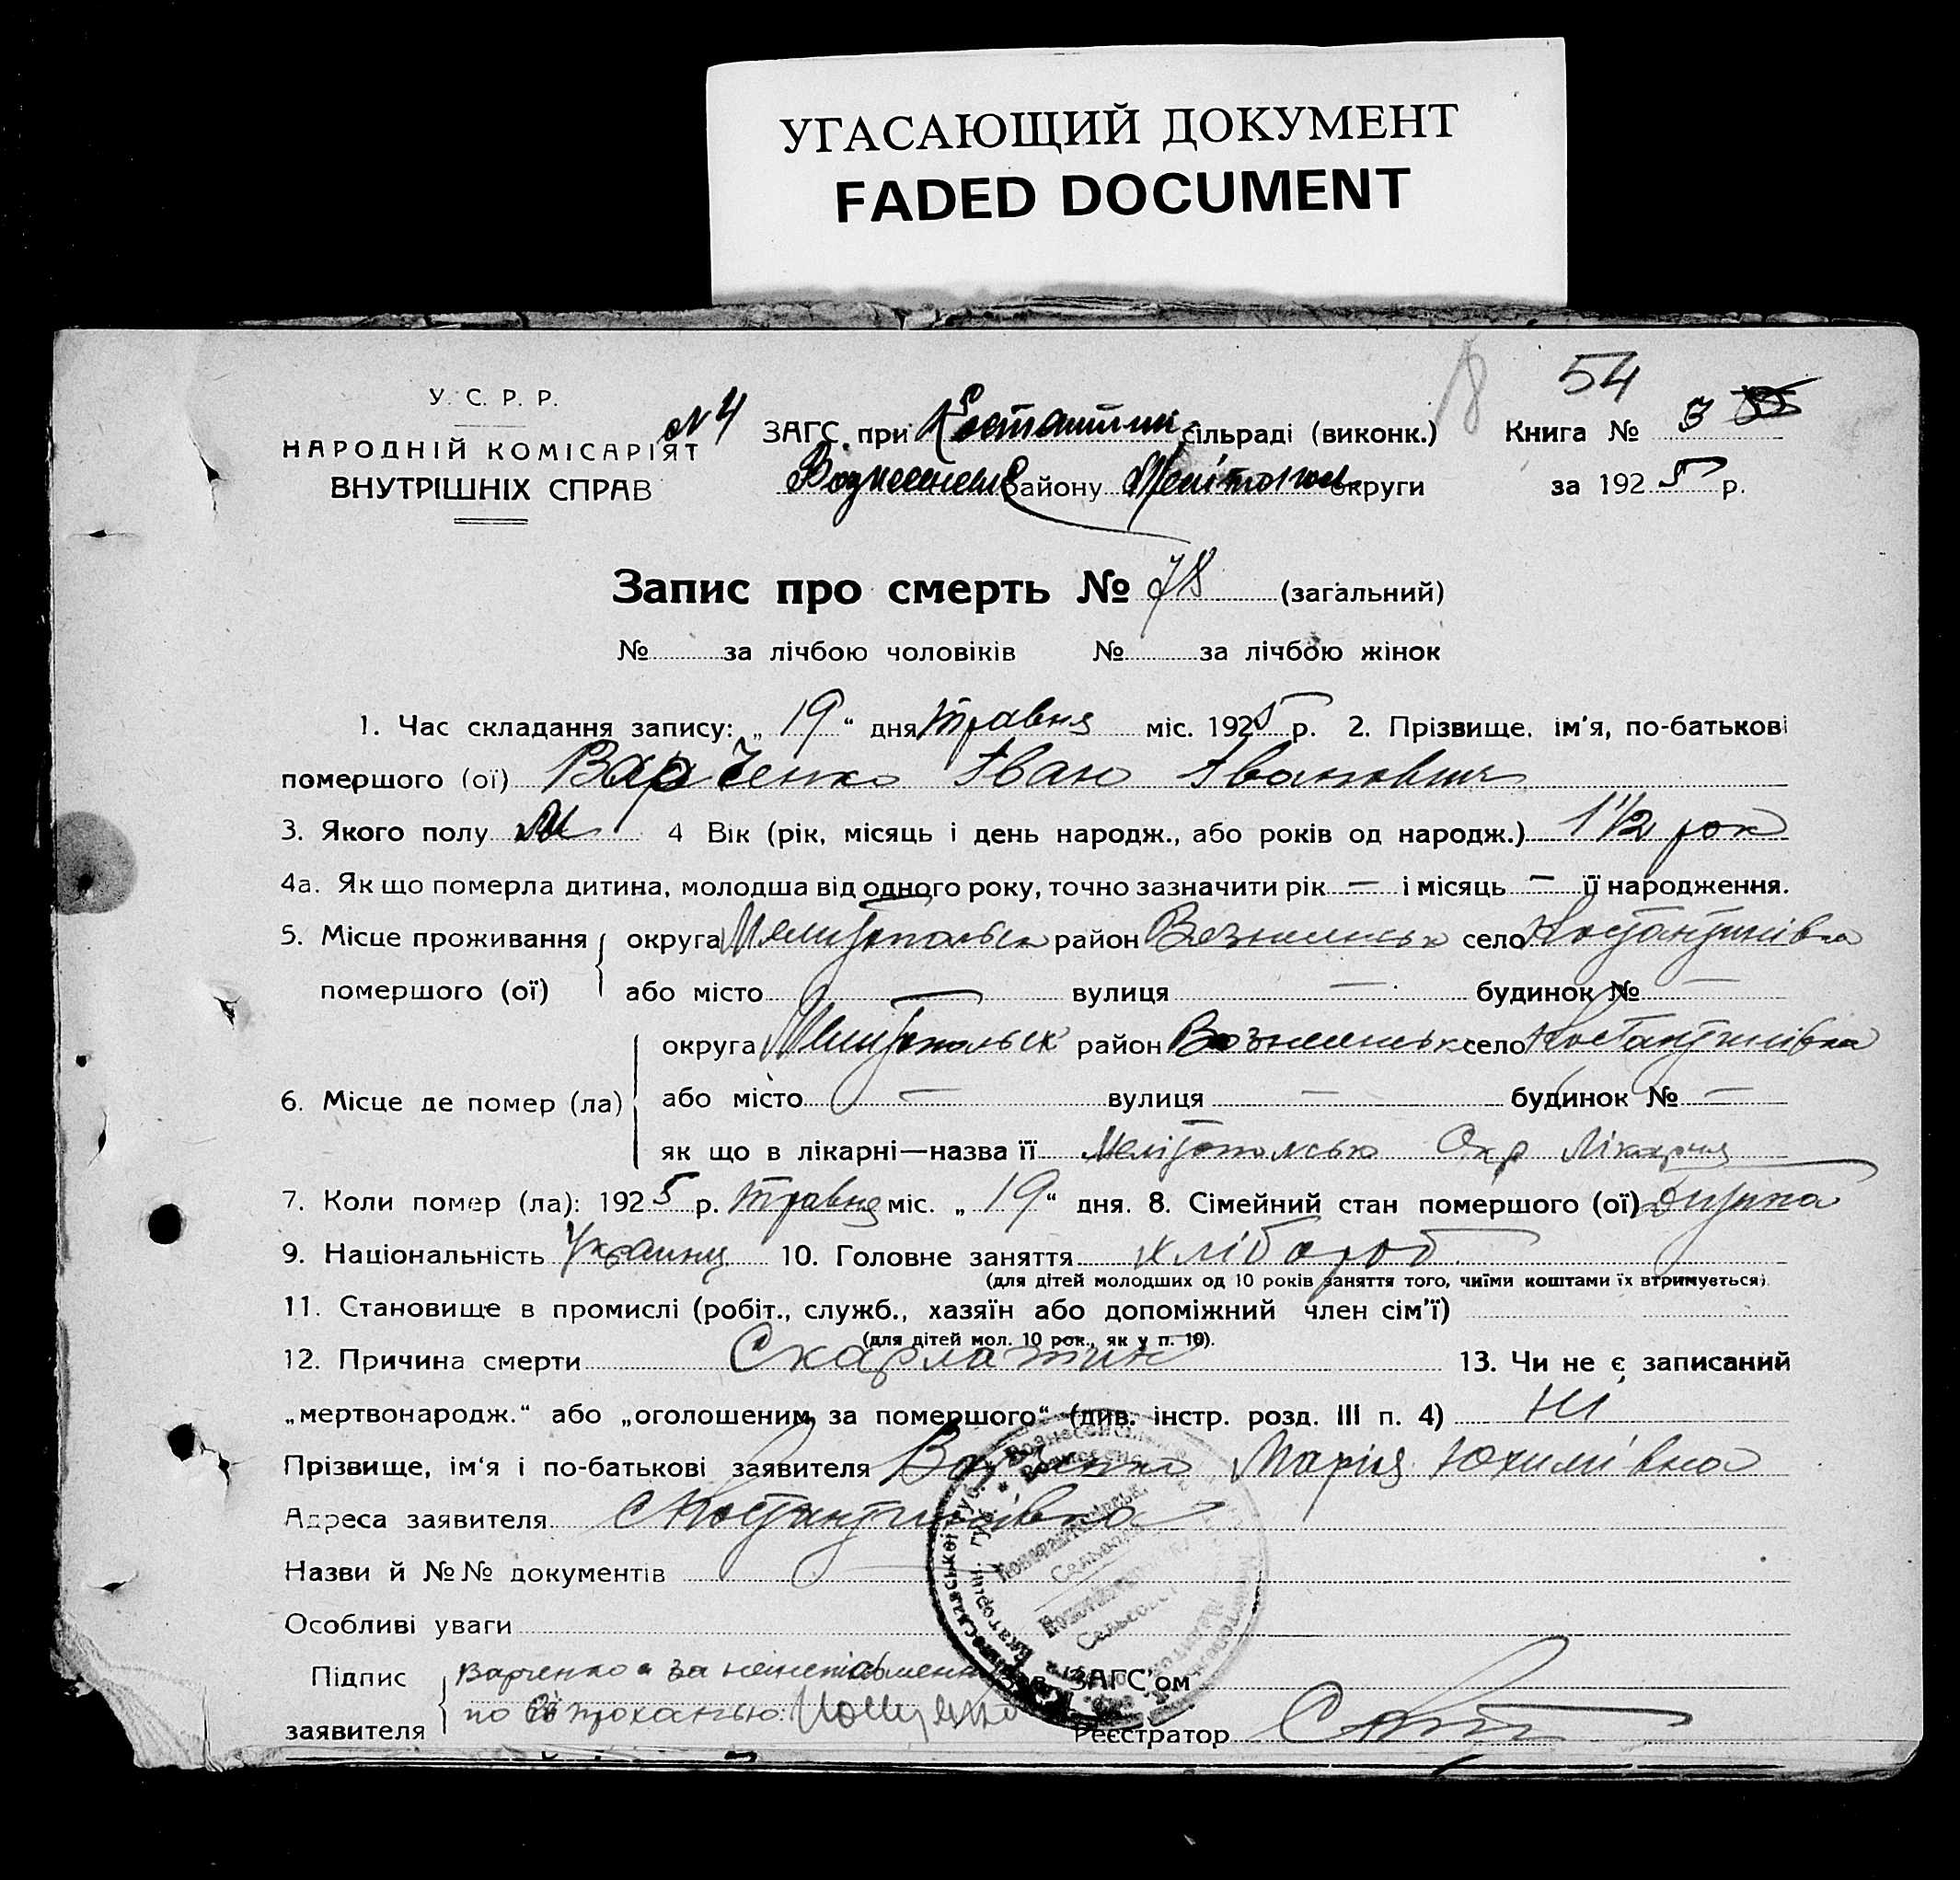 УГАСАЮЩИЙ ДОКУМЕНТ
FADED DOCUMENT
54
У. С. Р. Р.
НАРОДНІЙ КОМІСАРІЯТ
ВНУТРІШНІХ СПРАВ
N 4 ЗАГС при Костантин сільраді (виконк.) Книга № 3
Вознесенськ району Мелітопол округи за 1925 р.
Запис про смерть № 78 (загальний)
№ за лічбою чоловіків № за лічбою жінок
1. Час складання запису: „19“ дня травня міс. 1925 р. 2. Прізвище, ім'я, по-батькові
помершого (ої) Варченко Іван Іванович
3. Якого полу М 4 Вік (рік, місяць і день народж., або років од народж.) 1 1/2 рок
4а. Як що померла дитина, молодша від одного року, точно зазначити рік — і місяць — її народження.
5. Місце проживання помершого (ої) округа Мелитопольск район Вознесенськ село Костантинівка
або місто — вулиця — будинок № —
6. Місце де помер (ла) округа Мелитопольск район Вознесенськ село Костантинівка
або місто — вулиця — будинок № —
як що в лікарні—назва її Мелітопольсько Окр Лікарня
7. Коли помер (ла): 1925 р. травня міс. „19“ дня. 8. Сімейний стан помершого (ої) дитина
9. Національність Украинц 10. Головне заняття хлібороб
(для дітей молодших од 10 років заняття того, чиїми коштами їх втримується)
11. Становище в промислі (робіт., служб., хазяїн або допоміжний член сім'ї)
(для дітей мол. 10 рок., як у п. 10).
12. Причина смерти Скарлатин 13. Чи не є записаний
„мертвонародж.“ або „оголошеним за помершого“ (див. інстр. розд. III п. 4) Ні
Прізвище, ім'я і по-батькові заявителя Варченко Марія Юхимівна
Адреса заявителя с Костантинівка
Назви й №№ документів
Особливі уваги
Підпис заявителя Варченко а за неписьмен
по її проханью:
Зав. ЗАГС'ом
Реєстратор